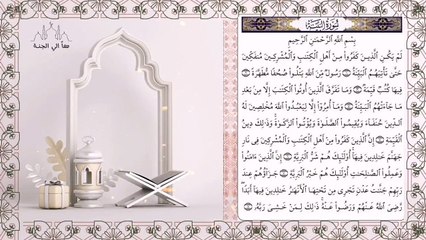 معا الي الجنة
سُورَةُ البَيِّنَةِ
بِسْمِ اللَّهِ الرَّحْمَٰنِ الرَّحِيمِ
لَمْ يَكُنِ الَّذِينَ كَفَرُوا مِنْ أَهْلِ الْكِتَٰبِ وَالْمُشْرِكِينَ مُنفَكِّينَ
حَتَّىٰ تَأْتِيَهُمُ الْبَيِّنَةُ ۝ رَسُولٌ مِّنَ اللَّهِ يَتْلُوا صُحُفًا مُّطَهَّرَةً ۝
فِيهَا كُتُبٌ قَيِّمَةٌ ۝ وَمَا تَفَرَّقَ الَّذِينَ أُوتُوا الْكِتَٰبَ إِلَّا مِنۢ بَعْدِ
مَا جَآءَتْهُمُ الْبَيِّنَةُ ۝ وَمَآ أُمِرُوٓا إِلَّا لِيَعْبُدُوا اللَّهَ مُخْلِصِينَ لَهُ
الدِّينَ حُنَفَآءَ وَيُقِيمُوا الصَّلَوٰةَ وَيُؤْتُوا الزَّكَوٰةَ ۚ وَذَٰلِكَ دِينُ
الْقَيِّمَةِ ۝ إِنَّ الَّذِينَ كَفَرُوا مِنْ أَهْلِ الْكِتَٰبِ وَالْمُشْرِكِينَ فِى نَارِ
جَهَنَّمَ خَٰلِدِينَ فِيهَآ ۚ أُولَٰٓئِكَ هُمْ شَرُّ الْبَرِيَّةِ ۝ إِنَّ الَّذِينَ ءَامَنُوا
وَعَمِلُوا الصَّٰلِحَٰتِ أُولَٰٓئِكَ هُمْ خَيْرُ الْبَرِيَّةِ ۝ جَزَآؤُهُمْ عِندَ
رَبِّهِمْ جَنَّٰتُ عَدْنٍ تَجْرِى مِن تَحْتِهَا الْأَنْهَٰرُ خَٰلِدِينَ فِيهَآ أَبَدًا ۖ
رَّضِىَ اللَّهُ عَنْهُمْ وَرَضُوا عَنْهُ ۚ ذَٰلِكَ لِمَنْ خَشِىَ رَبَّهُۥ ۝